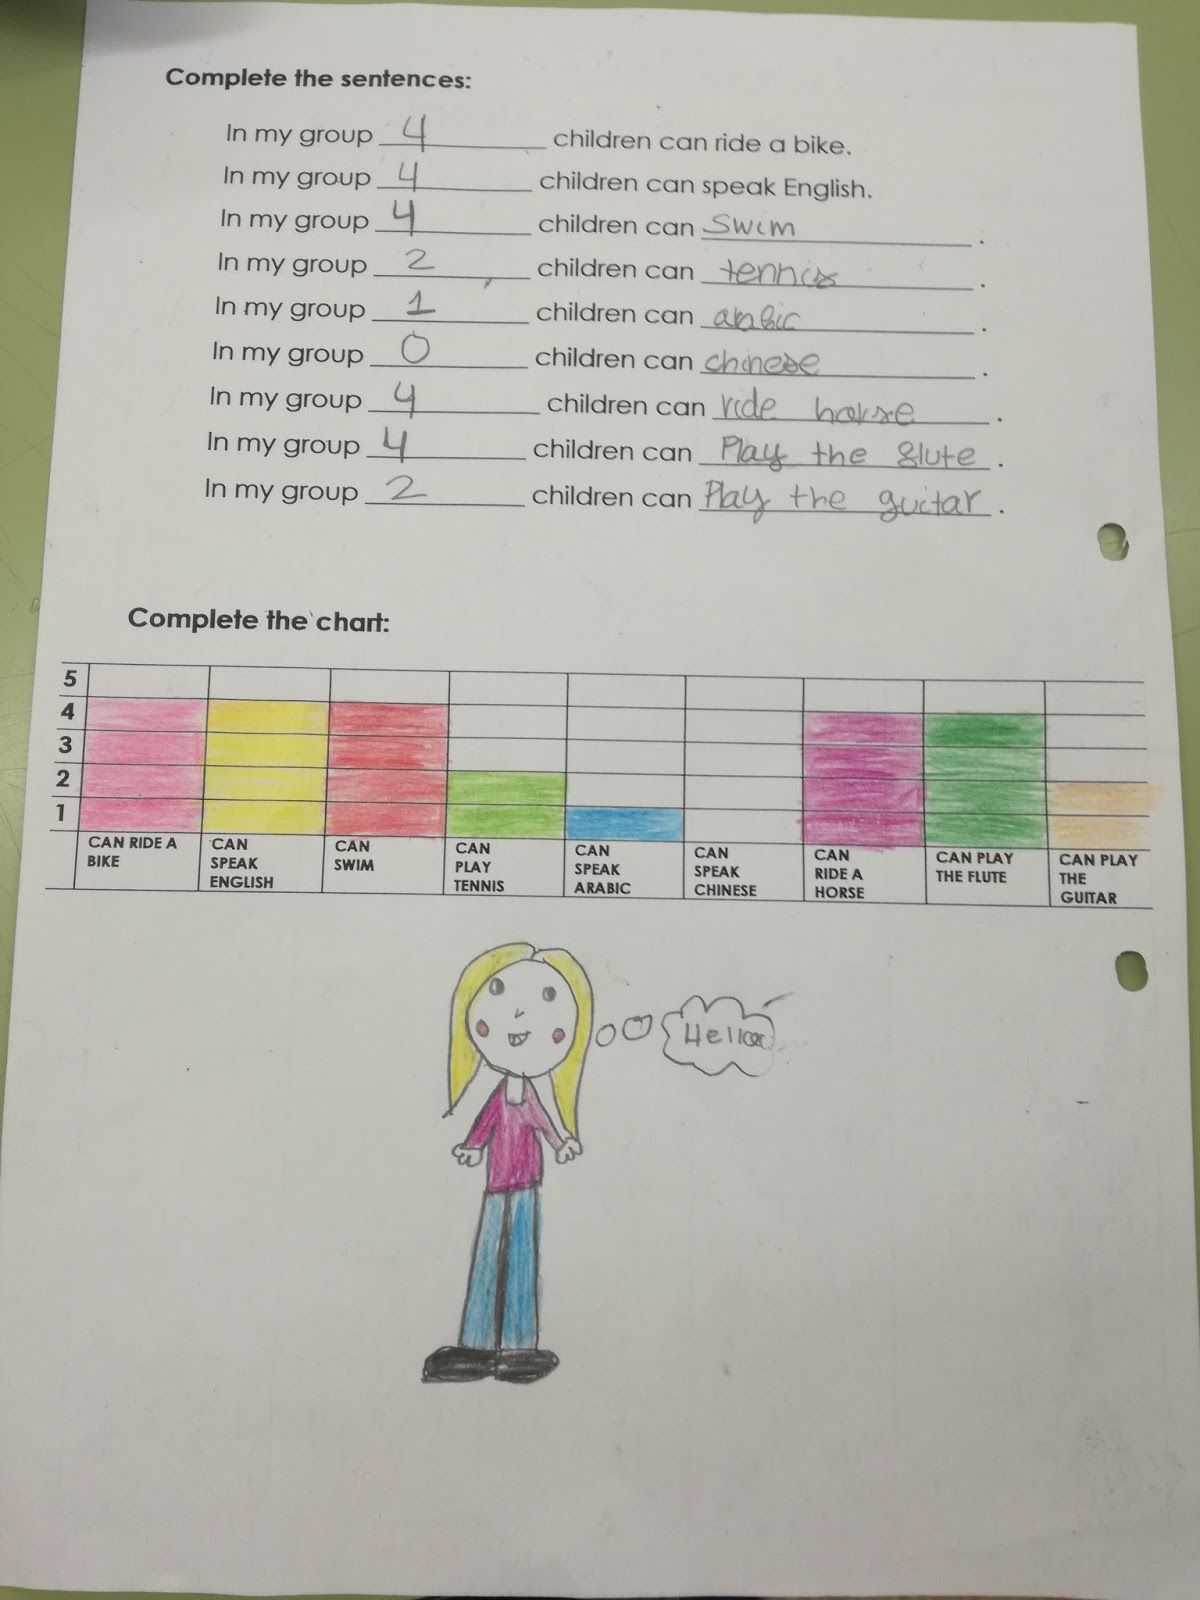 Complete the sentences:
In my group 4 children can ride a bike.
In my group 4 children can speak English.
In my group 4 children can swim.
In my group 2 children can tennis.
In my group 1 children can arabic.
In my group 0 children can chinese.
In my group 4 children can ride horse.
In my group 4 children can Play the glute.
In my group 2 children can Play the guitar.
Complete the chart:
5
4
3
2
1
CAN RIDE A
BIKE
CAN
SPEAK
ENGLISH
CAN
SWIM
CAN
PLAY
TENNIS
CAN
SPEAK
ARABIC
CAN
SPEAK
CHINESE
CAN
RIDE A
HORSE
CAN PLAY
THE FLUTE
CAN PLAY
THE
GUITAR
Hello